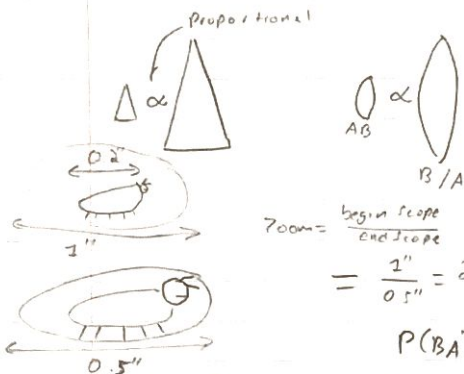 proportional
∝
∝
AB
B/A
0.2"
1"
Zoom = begin scope / end scope
= 1" / 0.5" =
P(BA
0.5"